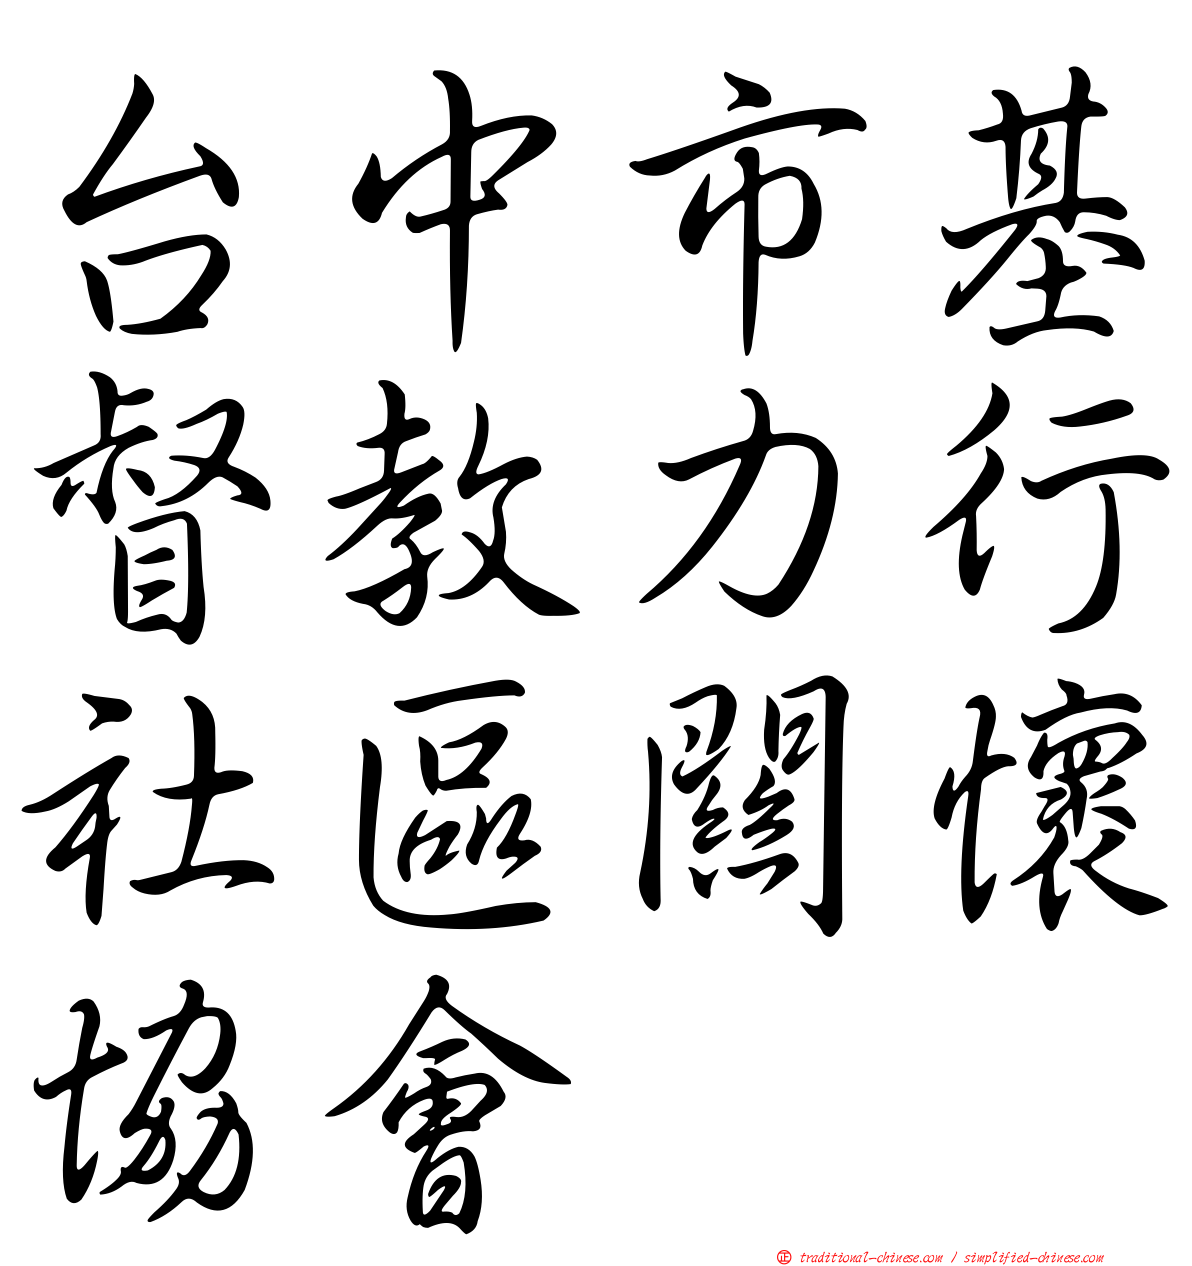 台中市基
督教力行
社區關懷
協會
正 traditional-chinese.com / simplified-chinese.com